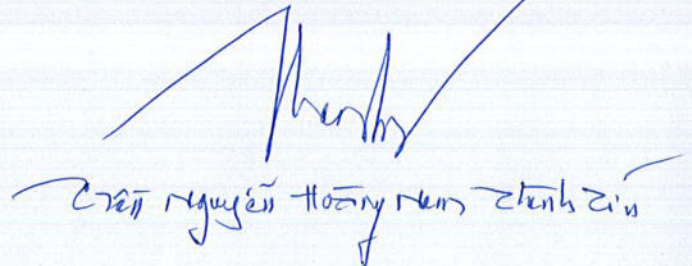 Trần Nguyễn Hoàng Nam Thành Tín